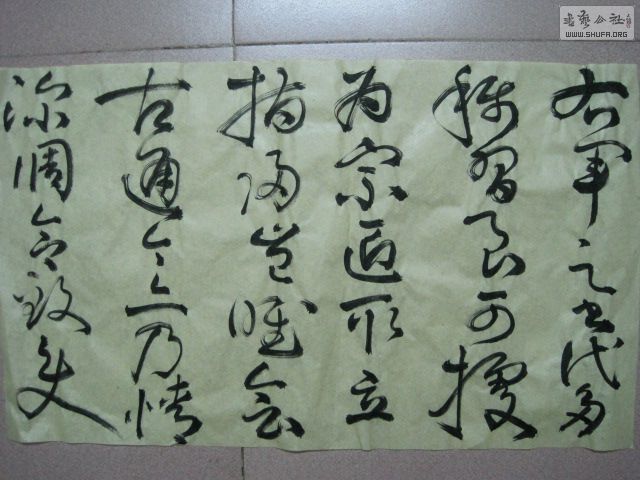 右軍之書代多
稱習良可據
為宗匠取立
指歸豈唯會
古通今亦乃情
深調合致使
書藝公社
WWW.SHUFA.ORG